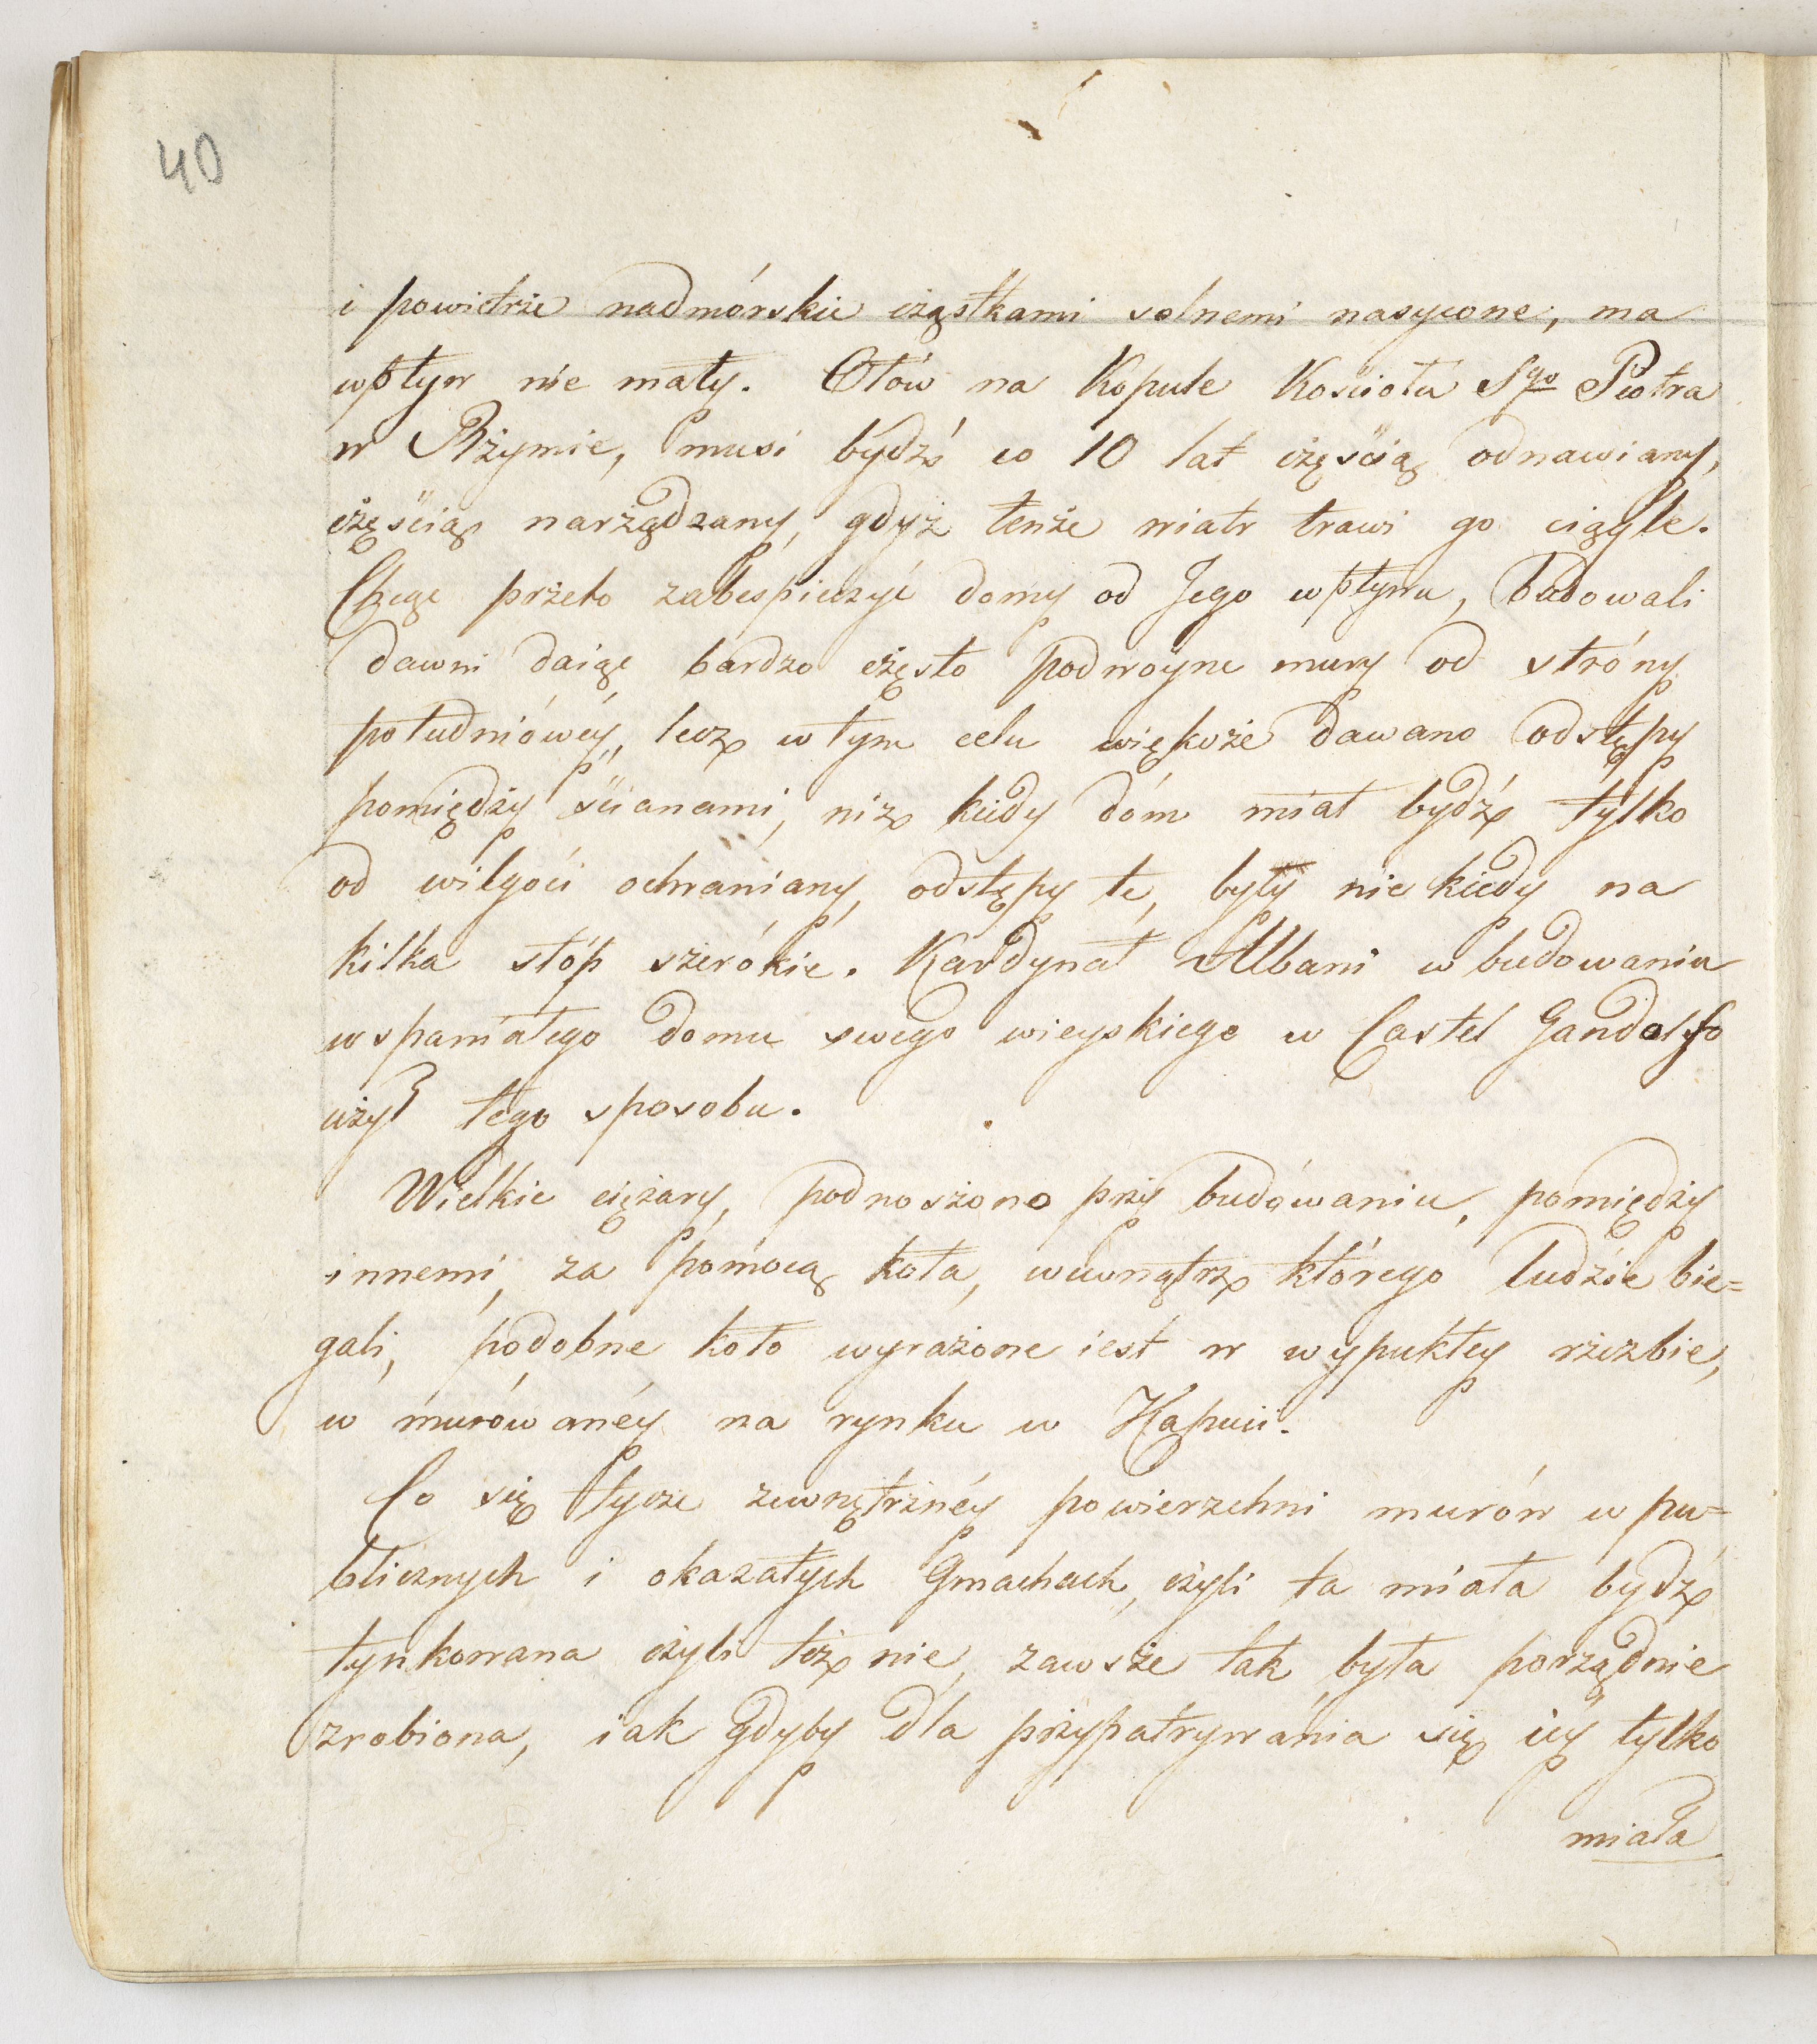 40
i powietrze nadmórskie cząstkami solnemi nasycone, ma
wpływ nie mały. Ołów na Kopule Kościoła Sgo Piotra
w Rżymie, musi bydź co 10 lat częścią odnawiany,
częścią narządzany, gdyż tenże wiatr trawi go ciągle.
Chcąc przeto zabespieczyć domy od Jego wpływu, budowali
dawni daiąc bardzo często podwoyne mury od stróny
południówéy, lecz w tym celu większe dawano odstępy
pomiędzy ścianami, niz kiedy dóm miał bydź tylko
od wilgoci ochraniany, odstępy te, były nie kiedy na
kilka stóp szerókie. Kardynał Albani w budowaniu
wspaniałego domu swego wieyskiego w Castel Gandolfo
użył tego sposobu.
Wielkie ciężary, podnoszono przy budówaniu, pomiędzy
innemi, za pomocą koła, wewnątrz którego ludzie bie=
gali, podobne koło wyrażone iest w wypukłey rzezbie,
w murówanéy na rynku w Kapuii.
Co się tycze zewnętrznéy powierzchni murów w pu=
blicznych i okazałych Gmachach, czyli ta miała bydź
tynkowana czyli też nie, zawsze tak była porządnie
zrobiona, iak gdyby dla przypatrywania się iéy tylko
miała